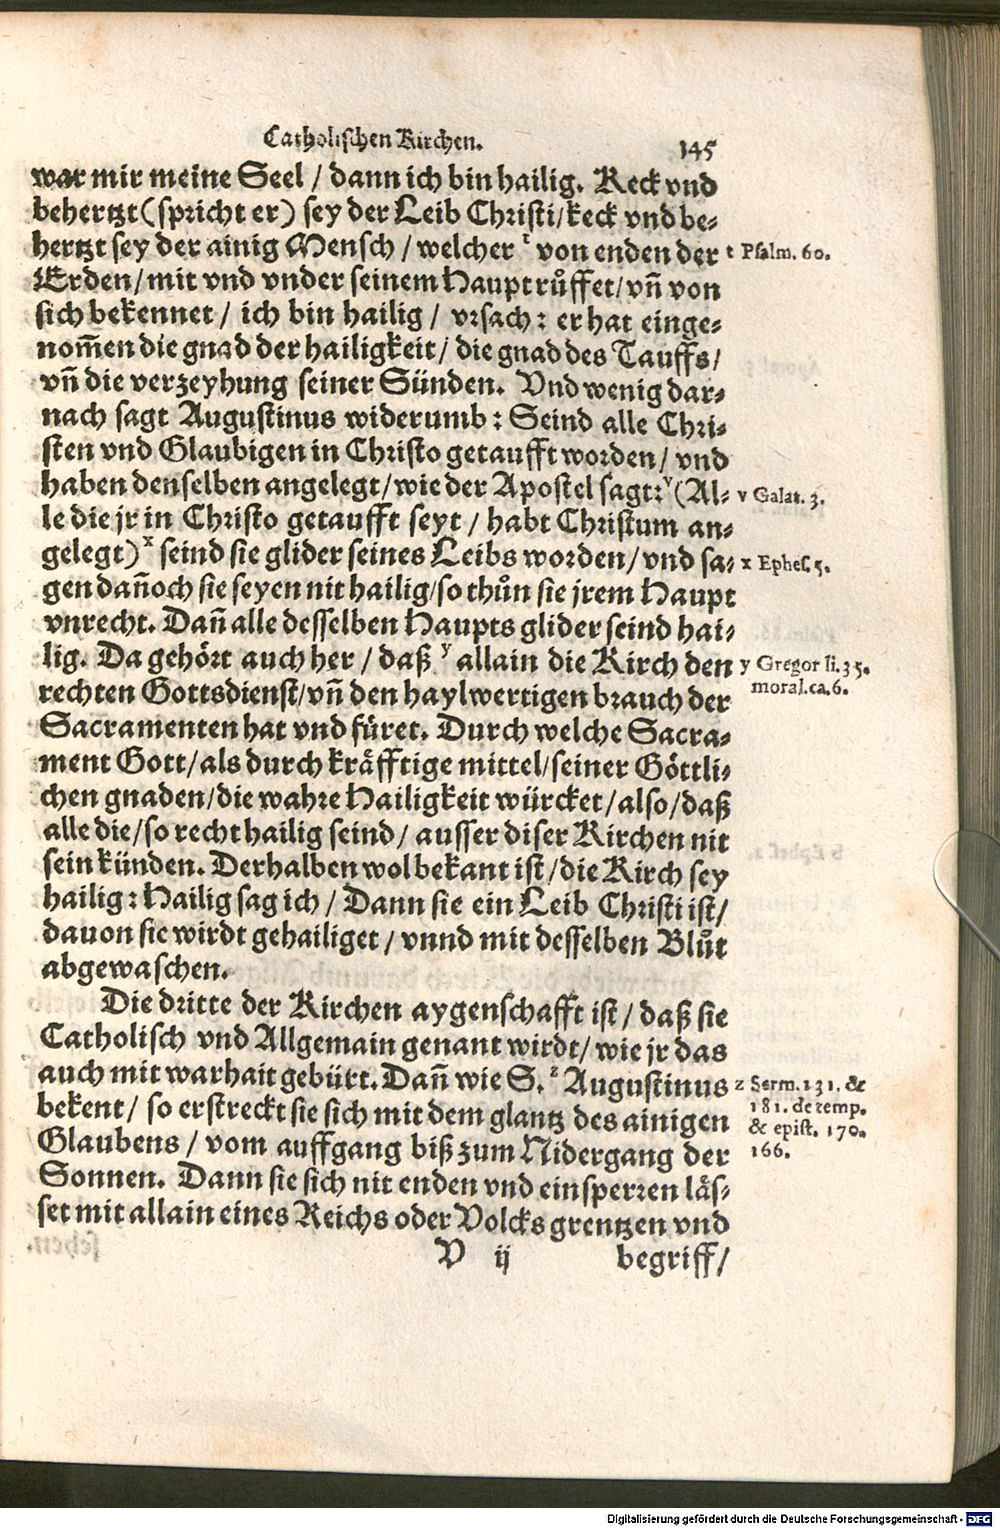 Catholischen Kirchen. 145
war mir meine Seel / dann ich bin hailig. Keck vnd
behertzt (spricht er) sey der Leib Christi / keck vnd be-
hertzt sey der ainig Mensch / welcher t von enden der
t Psalm. 60.
Erden / mit vnd vnder seinem Haupt růffet / vñ von
sich bekennet / ich bin hailig / vrsach: er hat einge-
nom̃en die gnad der hailigkeit / die gnad des Tauffs /
vñ die verzeyhung seiner Sünden. Vnd wenig dar-
nach sagt Augustinus widerumb: Seind alle Chri-
sten vnd Glaubigen in Christo getaufft worden / vnd
haben denselben angelegt / wie der Apostel sagt: v (Al-
v Galat. 3.
le die jr in Christo getaufft seyt / habt Christum an-
gelegt) x seind sie glider seines Leibs worden / vnd sa-
x Ephes. 5.
gen dañoch sie seyen nit hailig / so thůn sie jrem Haupt
vnrecht. Dañ alle desselben Haupts glider seind hai-
lig. Da gehört auch her / daß y allain die Kirch den
y Gregor li. 35.
rechten Gottsdienst / vñ den haylwertigen brauch der
moral. ca. 6.
Sacramenten hat vnd füret. Durch welche Sacra-
ment Gott / als durch kräfftige mittel / seiner Göttli-
chen gnaden / die wahre Hailigkeit würcket / also / daß
alle die / so recht hailig seind / ausser diser Kirchen nit
sein künden. Derhalben wol bekant ist / die Kirch sey
hailig: Hailig sag ich / Dann sie ein Leib Christi ist /
dauon sie wirdt gehailiget / vnnd mit desselben Blůt
abgewaschen.
Die dritte der Kirchen aygenschafft ist / daß sie
Catholisch vnd Allgemain genant wirdt / wie jr das
auch mit warhait gebürt. Dañ wie S. z Augustinus
z Serm. 131. &
bekent / so erstreckt sie sich mit dem glantz des ainigen
181. de temp.
& epist. 170.
Glaubens / vom auffgang biß zum Nidergang der
166.
Sonnen. Dann sie sich nit enden vnd einsperren läs-
set mit allain eines Reichs oder Volcks grentzen vnd
V ij begriff /
Digitalisierung gefördert durch die Deutsche Forschungsgemeinschaft - DFG